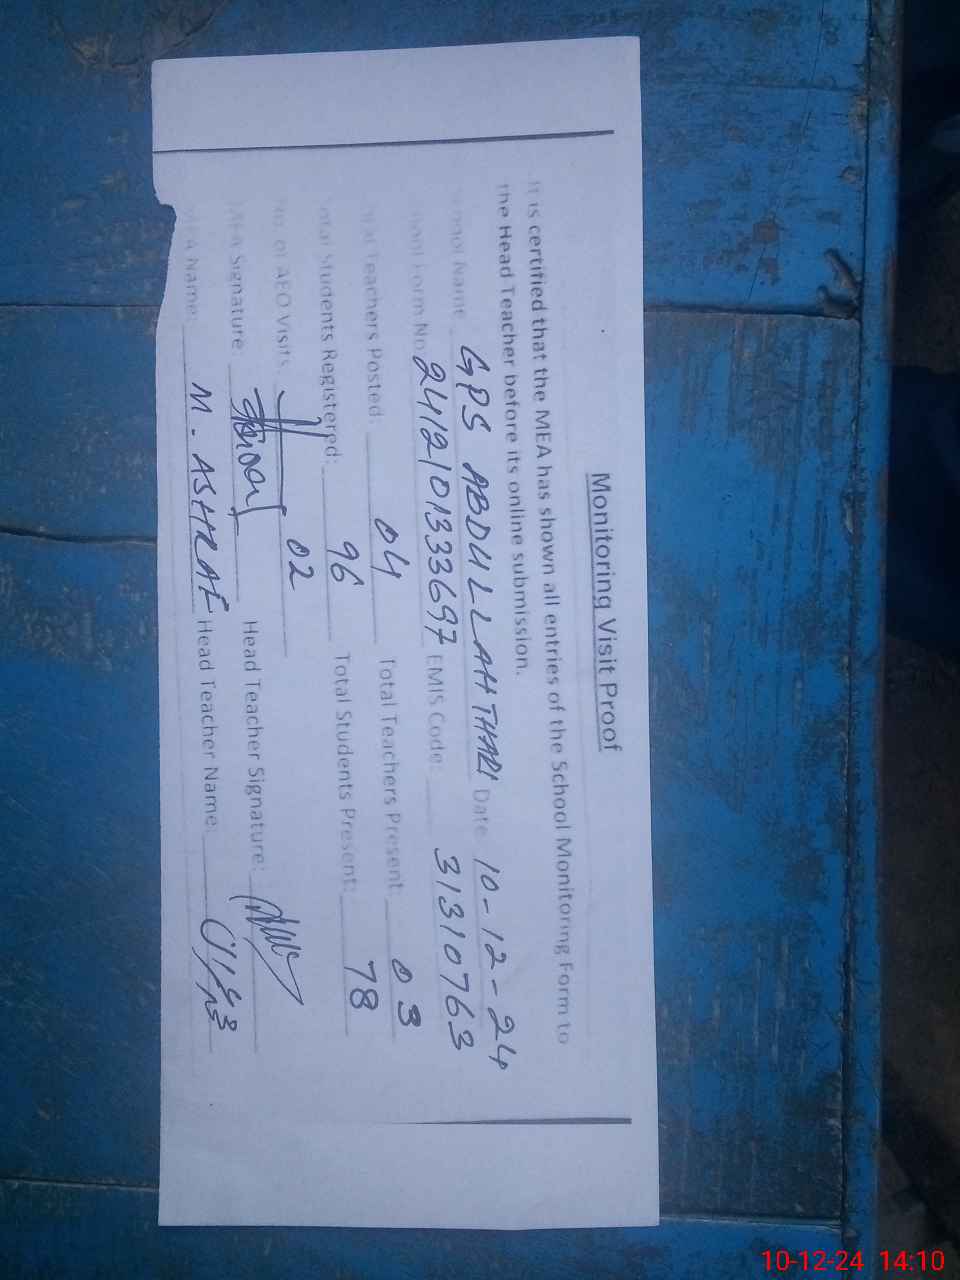 Monitoring Visit Proof
It is certified that the MEA has shown all entries of the School Monitoring Form to
the Head Teacher before its online submission.
School Name GPS ABDULLAH THARI Date 10-12-24
School Form No 2412101333697 EMIS Code: 31310763
Total Teachers Posted: 04 Total Teachers Present: 03
Total Students Registered: 96 Total Students Present: 78
No. of AEO Visits 02
MEA Signature: Head Teacher Signature:
MEA Name: M. ASHRAF Head Teacher Name:
10-12-24 14:10